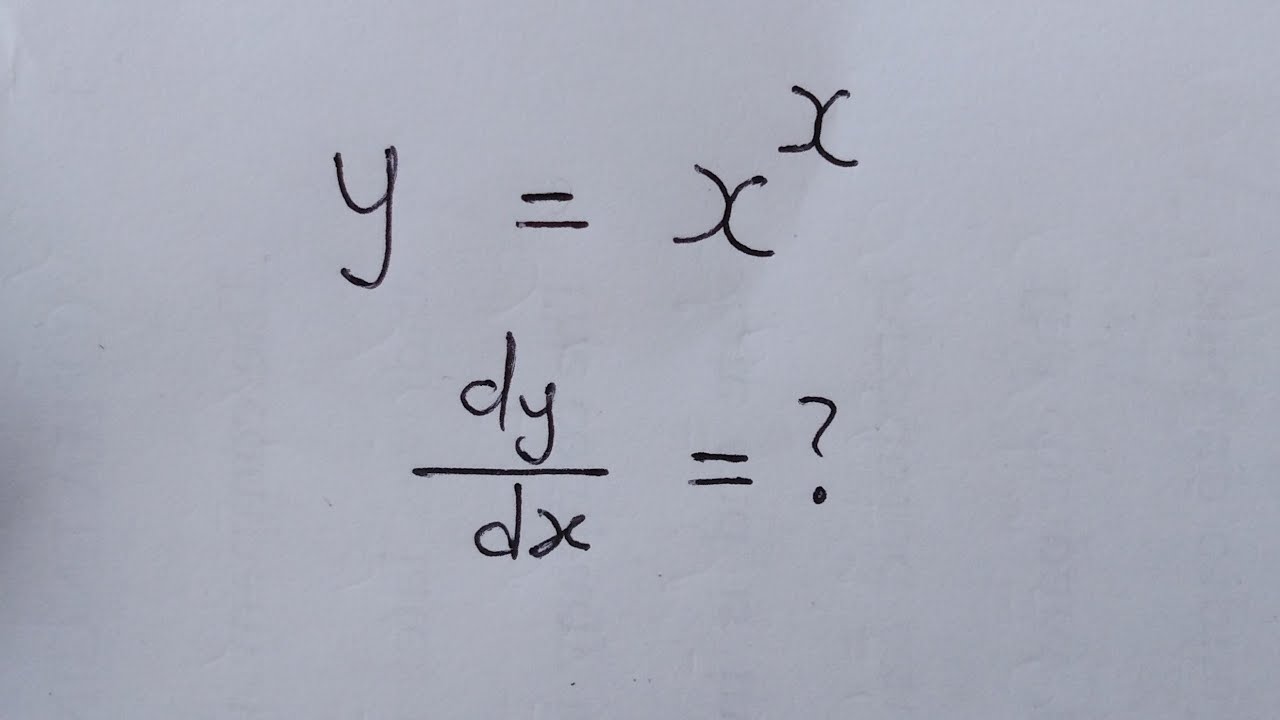 y = x^x
dy/dx = ?